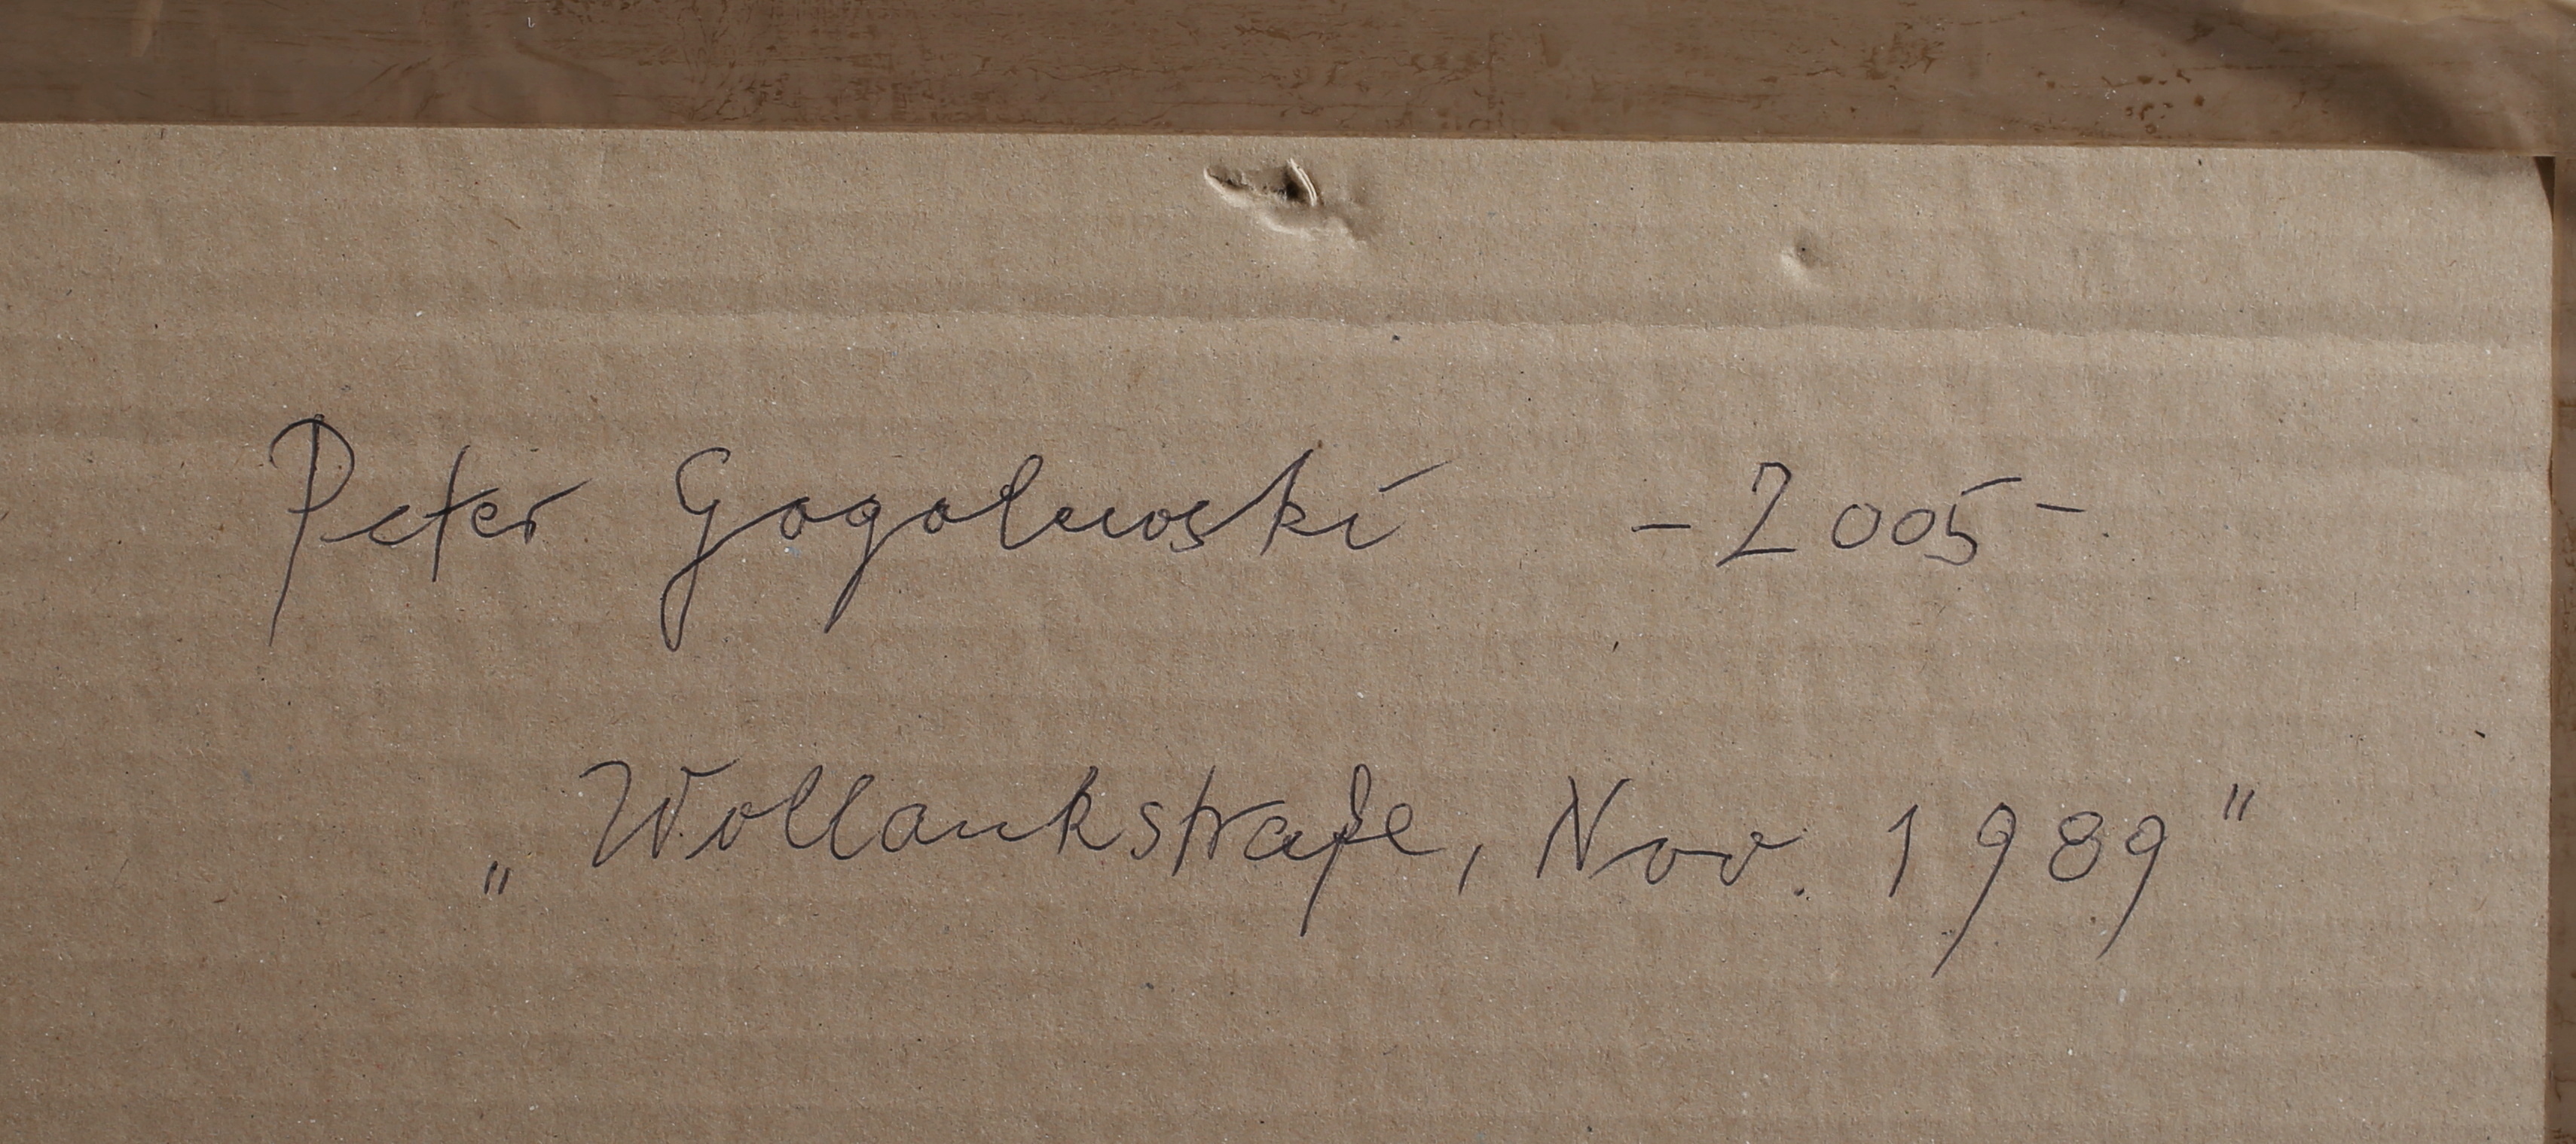 Peter Gogolewski - 2005 -
„Wollankstraße, Nov. 1989"